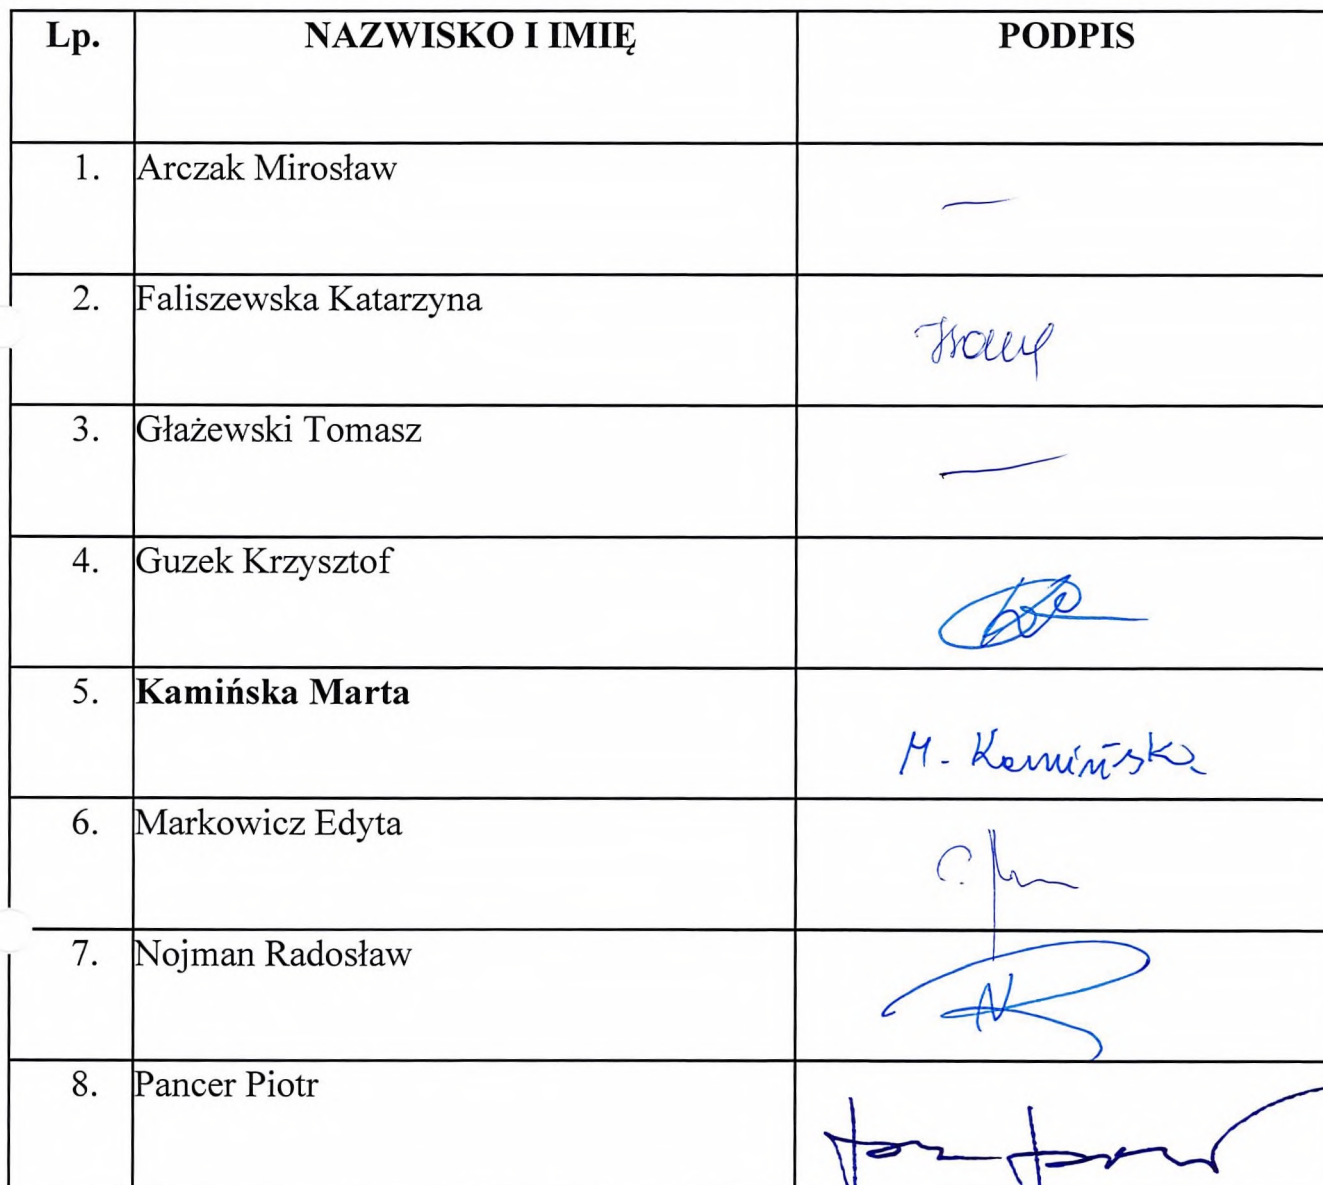 Lp. NAZWISKO I IMIĘ PODPIS
1. Arczak Mirosław —
2. Faliszewska Katarzyna
3. Głażewski Tomasz —
4. Guzek Krzysztof
5. Kamińska Marta M. Kamińska
6. Markowicz Edyta
7. Nojman Radosław
8. Pancer Piotr